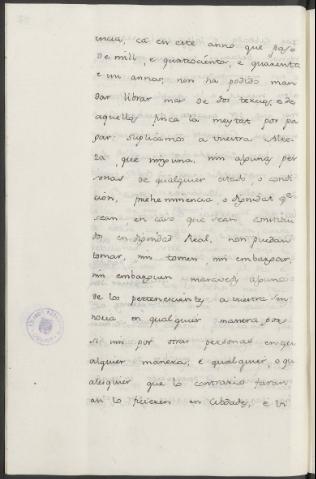 encia, cá en este anno que paso
de mill, e quatrocientos, e quarenta
e un annos, non ha podido man
dar librar mas de dos tercios, e de
aquellos finca la meytat por pa
gar: suplicamos a vuestra Alte
za, que ninguna, nin algunas per
sonas de qualquier estado, o condi
cion, prehemminencia o dignidat qe
sean en caso que sean constitui
dos en dignidad Real, non puedan
tomar, nin tomen, nin embargar,
nin embarguen maravedis algunos
de los pertenecientes a vuestra Sen
noria en qualquier manera por
si nin por otras personas en qu
alquier manera; e qualquier, o qu
alesquier que lo contrario faran
an lo ficieren en Cibdades, e Vi